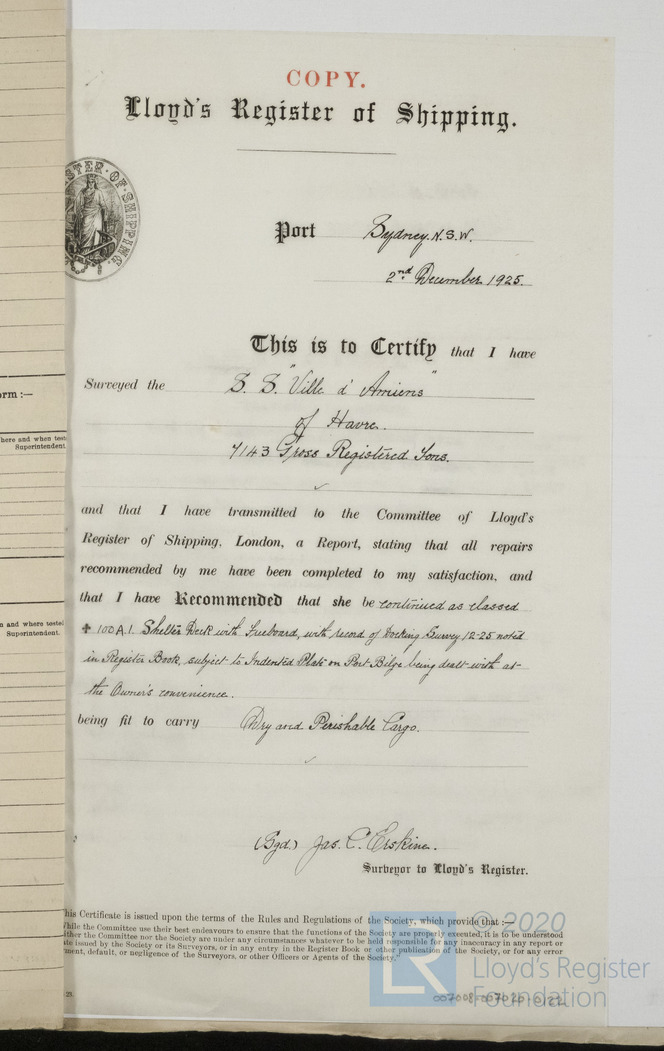 COPY.
Lloyd's Register of Shipping.
REGISTER · OF · SHIPPING.
Port Sydney. N.S.W.
2nd December 1925.
This is to Certify that I have
Surveyed the S. S. "Ville d' Amiens"
of Havre.
7143 Gross Registered Tons.
and that I have transmitted to the Committee of Lloyd's
Register of Shipping, London, a Report, stating that all repairs
recommended by me have been completed to my satisfaction, and
that I have Recommended that she be continued as classed
✠ 100A.1. Shelter Deck with Freeboard, with record of Docking Survey 12-25 noted
in Register Book, subject to Indented Plate on Port Bilge being dealt with at
the Owner's convenience.
being fit to carry Dry and Perishable Cargo.
(Sgd.) Jas. C. Erskine.
Surveyor to Lloyd's Register.
This Certificate is issued upon the terms of the Rules and Regulations of the Society, which provide that :—
While the Committee use their best endeavours to ensure that the functions of the Society are properly executed, it is to be understood
either the Committee nor the Society are under any circumstances whatever to be held responsible for any inaccuracy in any report or
ate issued by the Society or its Surveyors, or in any entry in the Register Book or other publication of the Society, or for any error
ment, default, or negligence of the Surveyors, or other Officers or Agents of the Society."
25.
orm :—
here and when tested
Superintendent
n and where tested
Superintendent.
© 2020
LR
Lloyd's Register
Foundation
007008-007020-0122